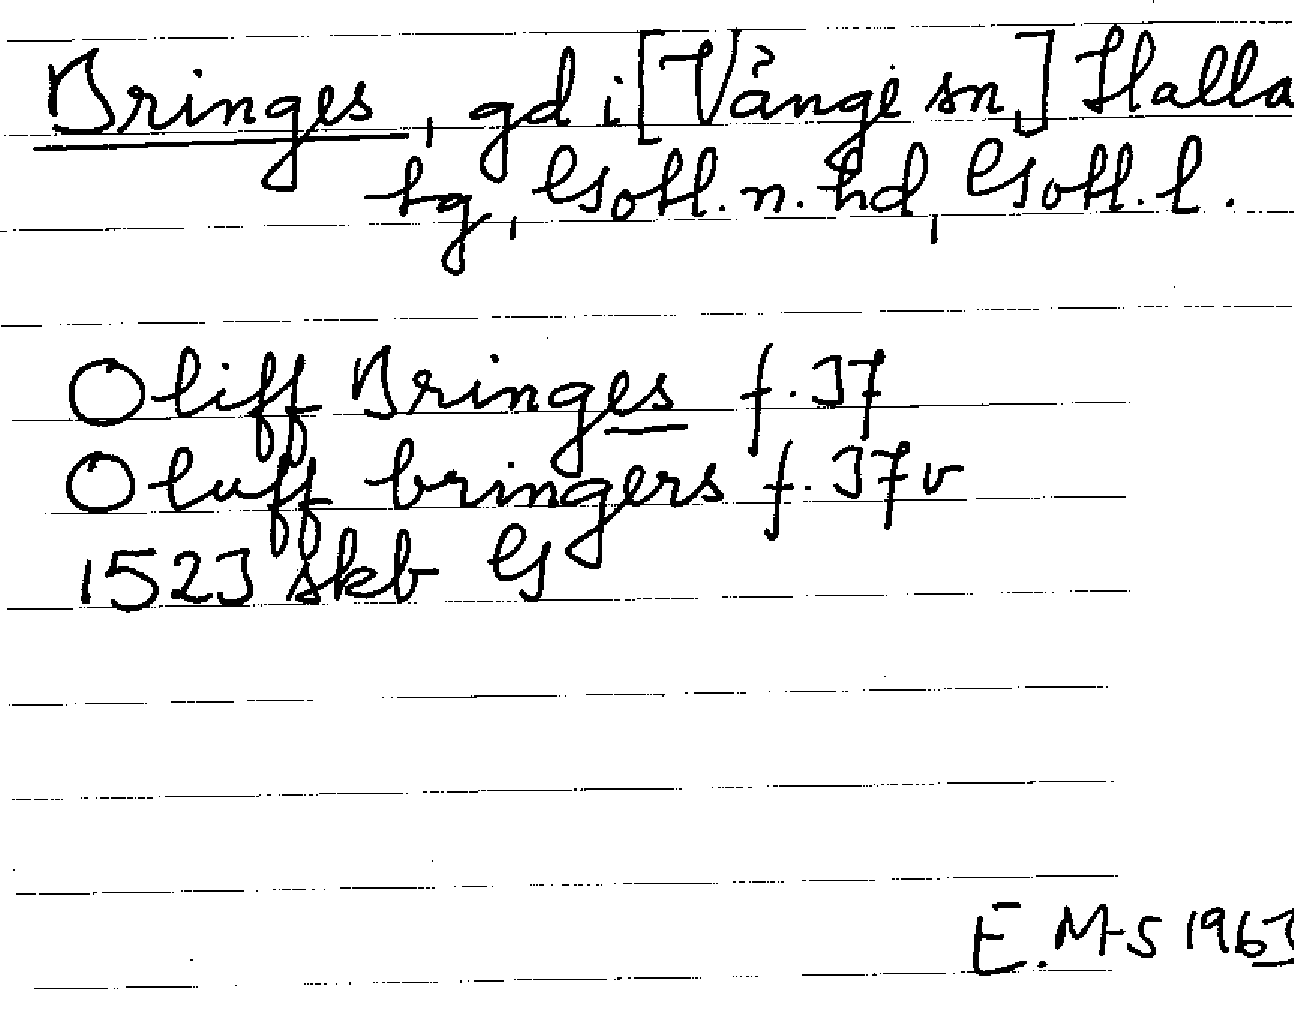 Bringes, gd i [Vänge sn] Halla
tg, Gotl. n. hd, Gotl. l.
Oliff Bringes f. 37
Oluff bringers f. 37v
1523 skb G
E. M-S 1963